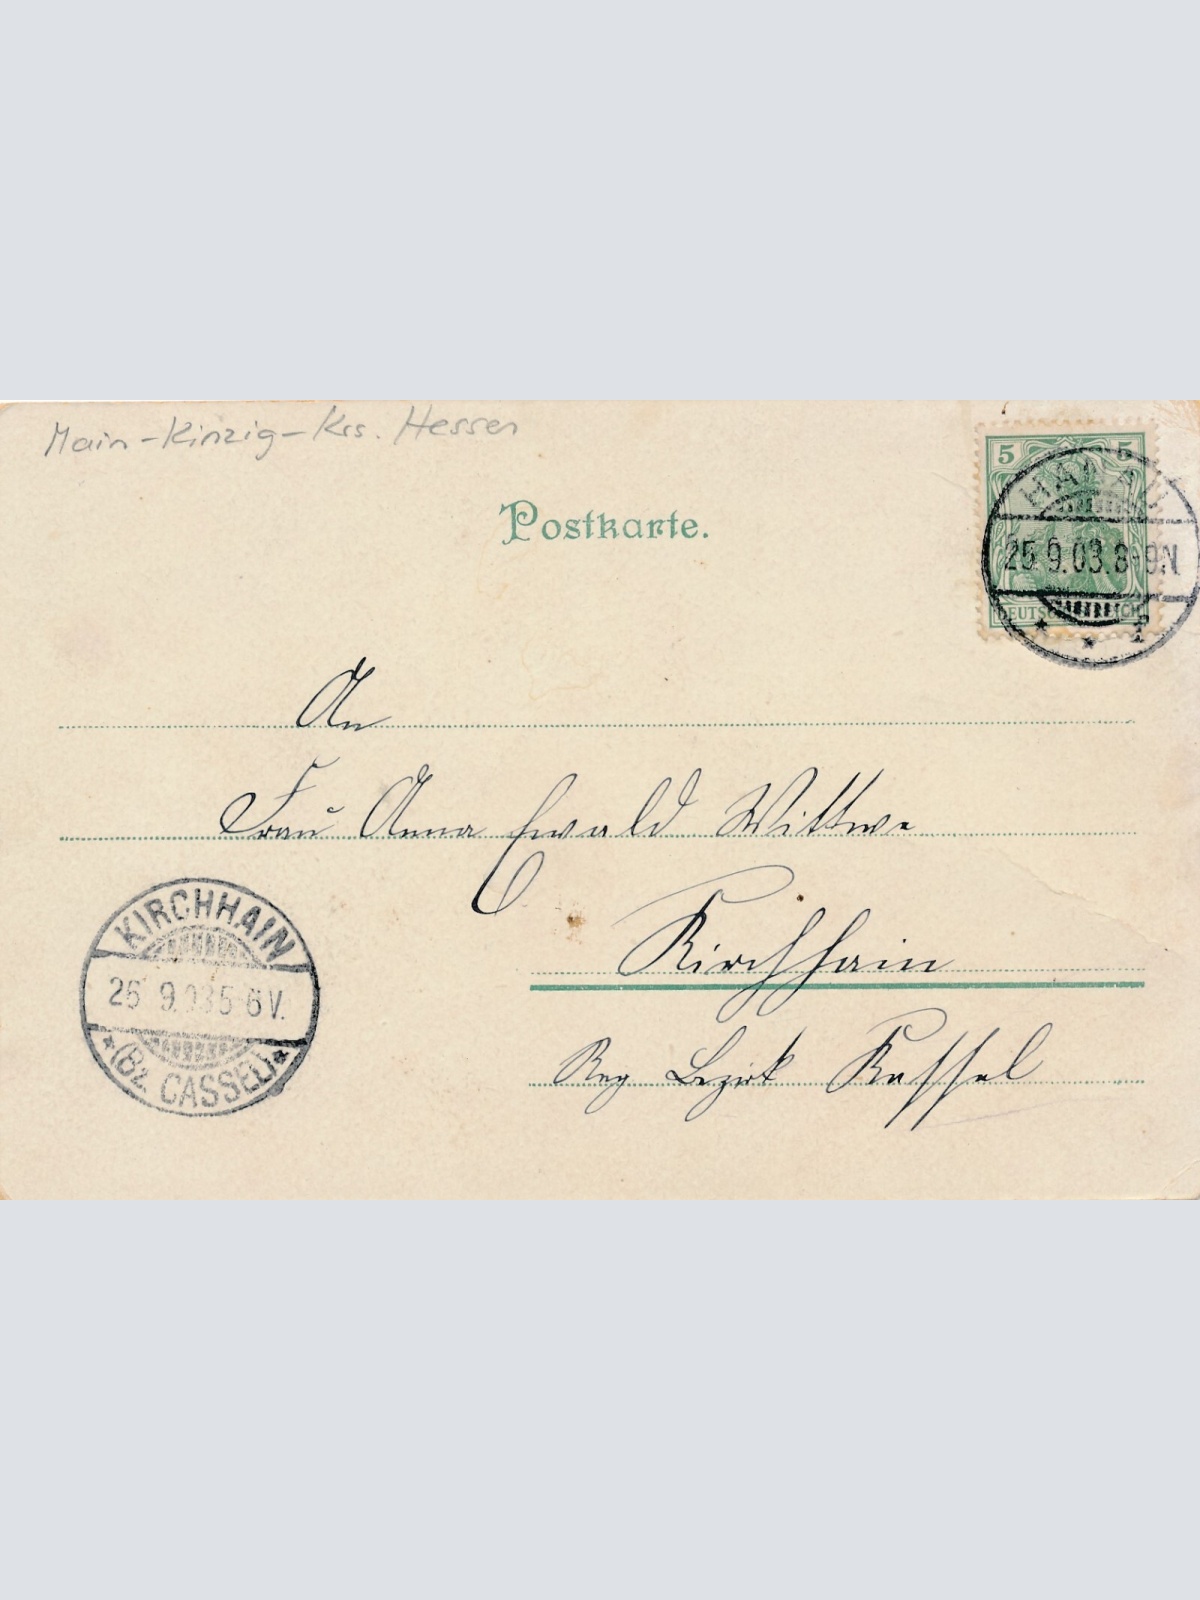 Main-Kinzig-Krs. Hessen
Postkarte.
5 5
HANAU
25.9.03.8-9N
DEUTSCHES REICH
An
Frau Anna Ewald Wittwe
Kirchhain
Reg Bezirk Kassel
KIRCHHAIN
26 9.03 5-6 V.
(Bz. CASSEL)